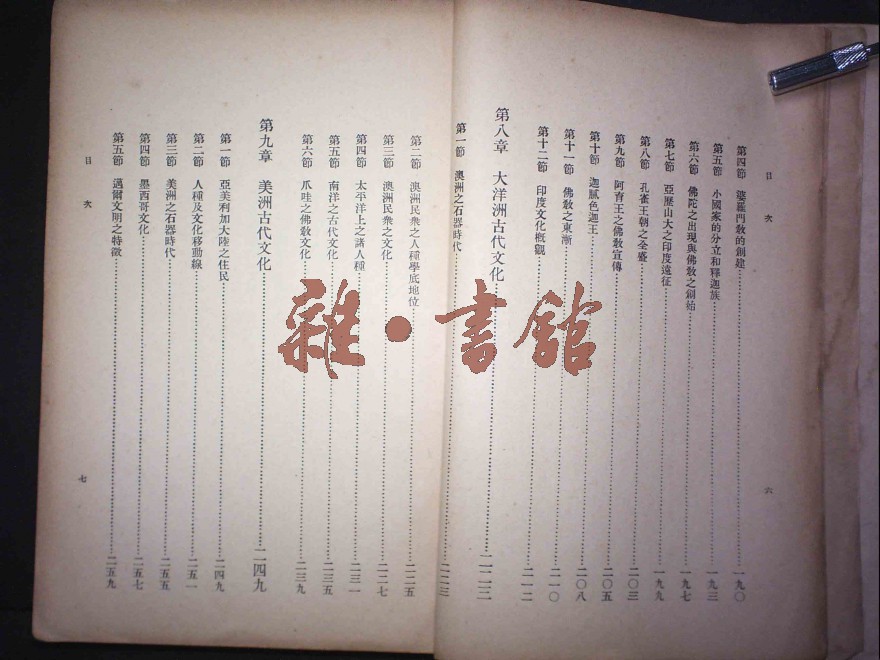 目次
六
第四節 婆羅門教的創建……一九〇
第五節 小國家的分立和釋迦族……一九三
第六節 佛陀之出現與佛教之創始……一九七
第七節 亞歷山大之印度遠征……一九九
第八節 孔雀王朝之全盛……二〇三
第九節 阿育王之佛教宣傳……二〇五
第十節 迦膩色迦王……二〇八
第十一節 佛教之東漸……二一〇
第十二節 印度文化概觀……二一二
第八章 大洋洲古代文化……二二三
第一節 澳洲之石器時代……二二三
第二節 澳洲民衆之人種學底地位……二二五
第三節 澳洲民衆之文化……二二七
第四節 太平洋上之諸人種……二三一
第五節 南洋之古代文化……二三五
第六節 爪哇之佛教文化……二三九
第九章 美洲古代文化……二四九
第一節 亞美利加大陸之住民……二四九
第二節 人種及文化移動線……二五一
第三節 美洲之石器時代……二五五
第四節 墨西哥文化……二五七
第五節 邁爾文明之特徵……二五九
目次
七
雜·書館